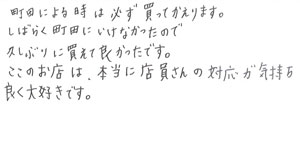 町田による時は必ず買ってかえります。
しばらく町田にいけなかったので
久しぶりに買えて良かったです。
ここのお店は、本当に店員さんの対応が気持ち
良く大好きです。